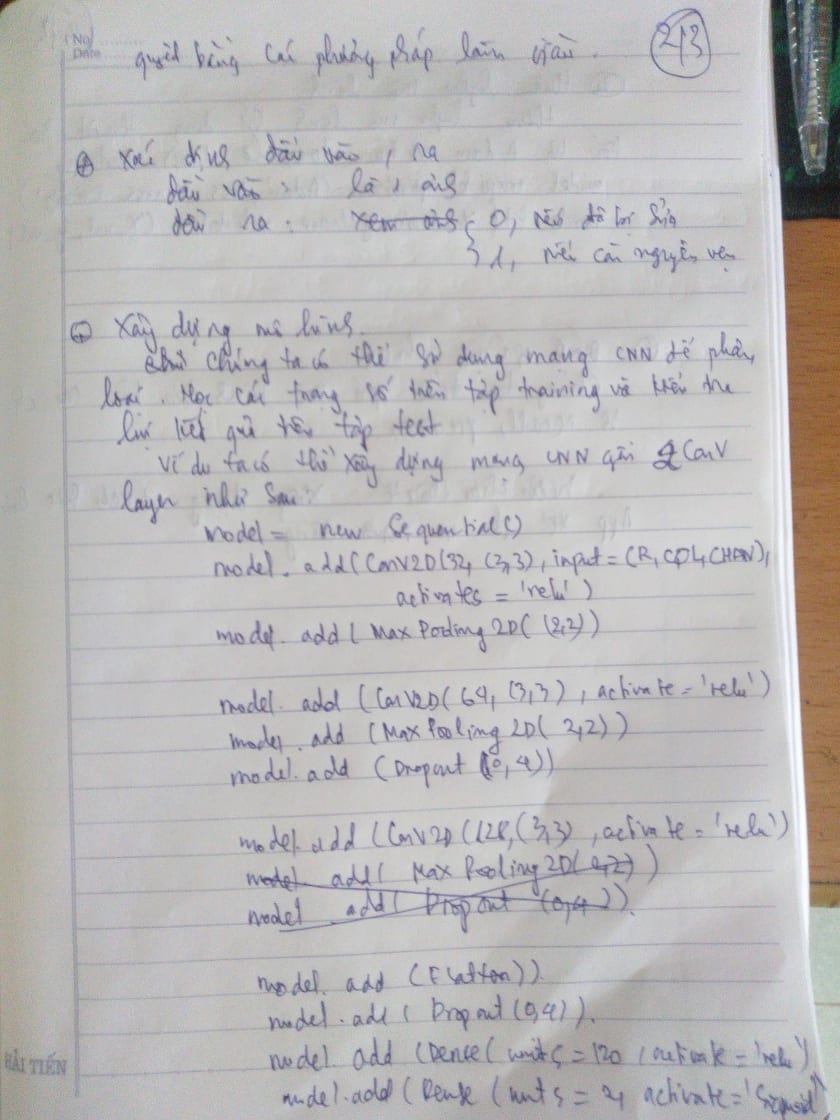 No.
Date
quyết bằng các phương pháp làm giàu.
2/3
Xác định đầu vào, ra
đầu vào: là 1 ảnh
đầu ra: 0, nếu đã bị sửa
1, nếu còn nguyên vẹn
Xây dựng mô hình.
Chúng ta có thể sử dụng mạng CNN để phân
loại. Học các trọng số trên tập training và kiểm tra
lại kết quả trên tập test
Ví dụ ta có thể xây dựng mạng CNN gồm 2 Conv
layer như sau:
model = new Sequential()
model.add(Conv2D(32, (3,3), input = (R, COL, CHAN),
activates = 'relu')
model.add(MaxPooling2D((2,2))
model.add(Conv2D(64, (3,3), activate = 'relu')
model.add(MaxPooling2D(2,2))
model.add(Dropout(0,4))
model.add(Conv2D(128,(3,3), activate = 'relu')
model.add(MaxPooling2D(2,2))
model.add(Dropout(0,4)).
model.add(Flatten)).
model.add(Dropout(0,4)).
model add(Dence(units = 120, activate = 'relu')
model.add(Dense(units = 2, activate = 'sigmoid')
HẢI TIẾN